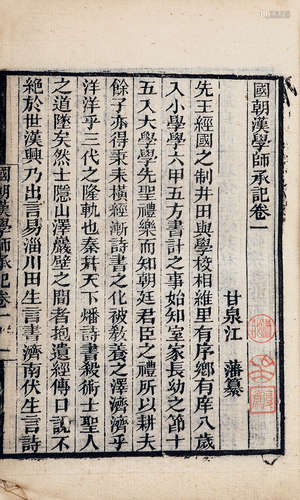 國朝漢學師承記卷一
甘泉江 藩纂
先王經國之制井田與學校相維里有序鄉有庠八歲
入小學學六甲五方書計之事始知室家長幼之節十
五入大學學先聖禮樂而知朝廷君臣之禮所以耕夫
餘子亦得秉耒橫經漸詩書之化被教養之澤濟濟乎
洋洋乎三代之隆軌也秦并天下燔詩書殺術士聖人
之道墜矣然士隱山澤巖壁之間者抱遺經傳口說不
絕於世漢興乃出言易淄川田生言書濟南伏生言詩
國朝漢學師承記卷一